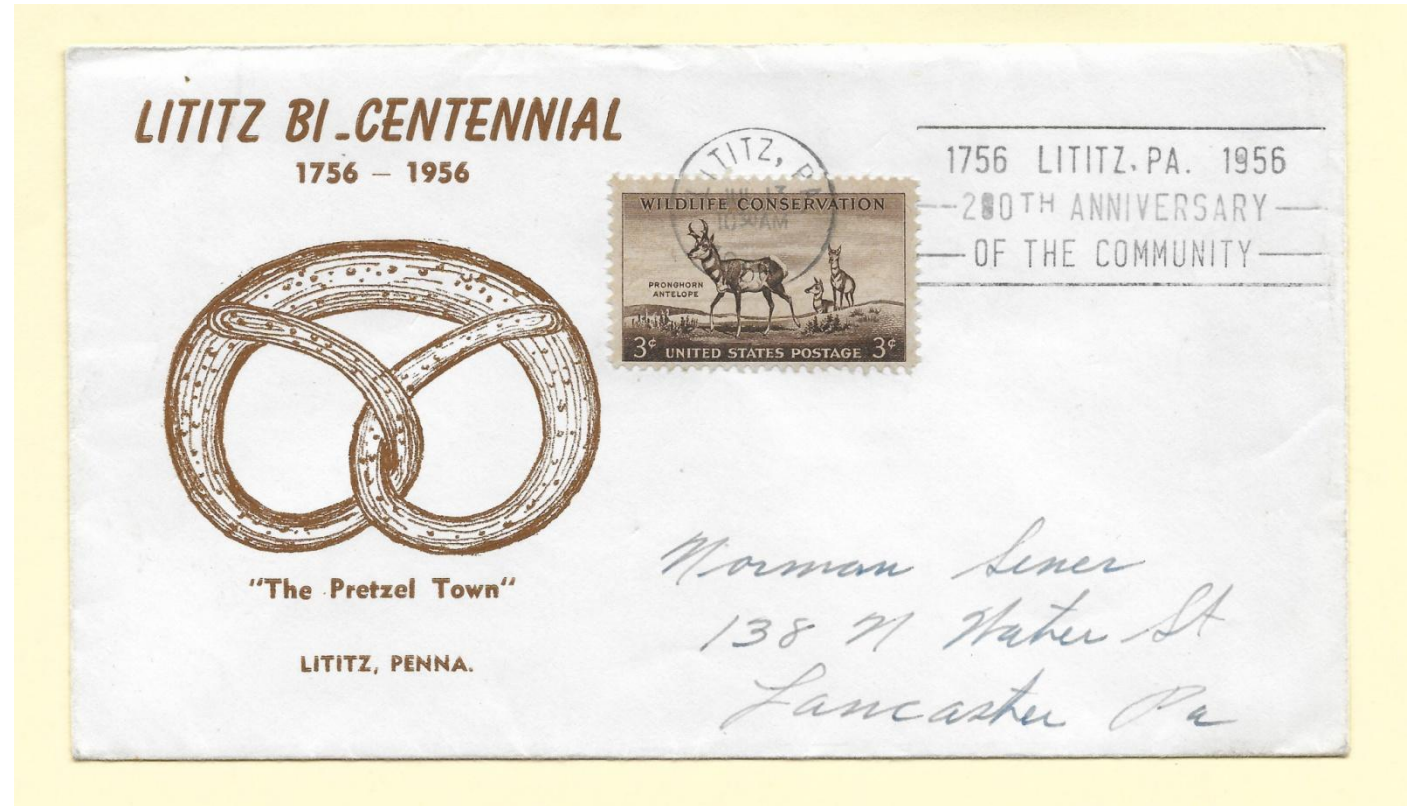 LITITZ BI-CENTENNIAL
1756 – 1956
"The Pretzel Town"
LITITZ, PENNA.
LITITZ, PA
JUL 13
10 30 AM
WILDLIFE CONSERVATION
PRONGHORN
ANTELOPE
3¢ UNITED STATES POSTAGE 3¢
1756 LITITZ, PA. 1956
200TH ANNIVERSARY
OF THE COMMUNITY
Norman Sener
138 N Water St
Lancaster Pa